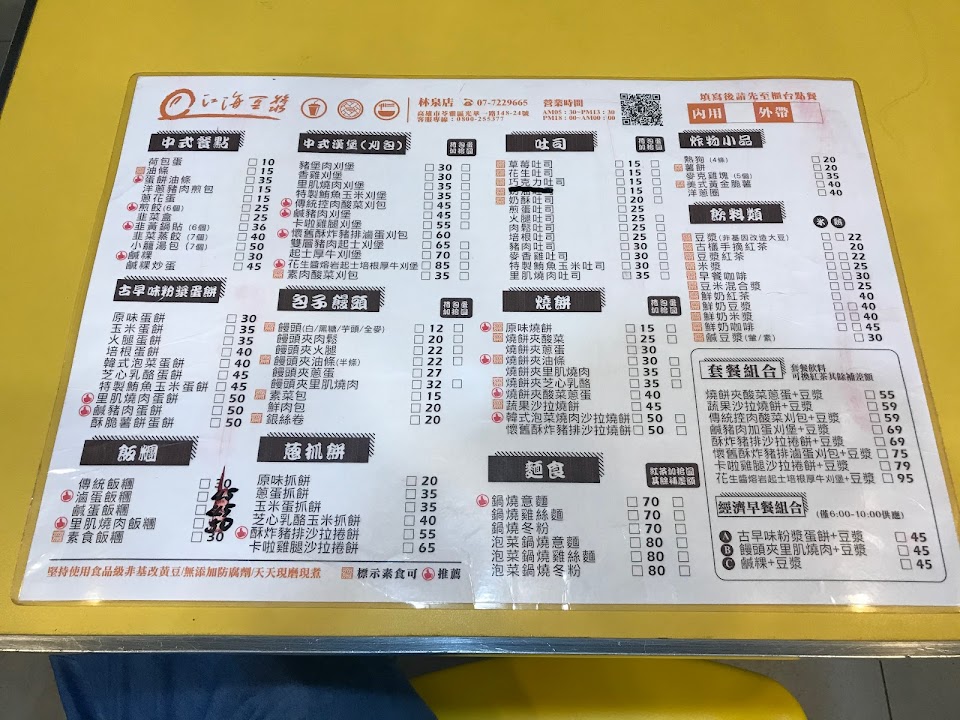 江海豆漿
林泉店 ☎07-7229665
高雄市苓雅區光華一路148-24號
客服專線:0800-255377
營業時間
AM05:30~PM13:30
PM18:00~AM00:00
填寫後請先至櫃台點餐
內用 外帶
中式餐點
荷包蛋 10
油條 15
蛋餅油條 35
洋蔥豬肉煎包 15
蔥花蛋 15
煎餃(6個) 25
韭菜盒 25
韭黃鍋貼(6個) 36
韭菜蒸餃(7個) 40
小籠湯包(7個) 50
鹹粿 30
鹹粿炒蛋 40
古早味粉漿蛋餅
原味蛋餅 30
玉米蛋餅 35
火腿蛋餅 35
培根蛋餅 40
韓式泡菜蛋餅 40
芝心乳酪蛋餅 45
特製鮪魚玉米蛋餅 45
里肌燒肉蛋餅 50
鹹豬肉蛋餅 50
酥脆薯餅蛋餅 50
飯糰
傳統飯糰 30
滷蛋飯糰
鹹蛋飯糰
里肌燒肉飯糰
素食飯糰 30
中式漢堡(刈包)
豬堡肉刈堡 30
香雞刈堡 30
里肌燒肉刈堡 40
特製鮪魚玉米刈堡 40
傳統控肉酸菜刈包 45
鹹豬肉刈堡 45
卡啦雞腿刈堡 55
懷舊酥炸豬排滷蛋刈包 60
雙層豬肉起士刈堡 65
起士厚牛刈堡 70
花生醬熔岩起士培根厚牛刈堡 85
素肉酸菜刈包 35
包子饅頭
饅頭(白/黑糖/芋頭/全麥) 12
饅頭夾肉鬆 20
饅頭夾火腿 22
饅頭夾油條(半條) 22
饅頭夾蔥蛋 27
饅頭夾里肌燒肉 32
素菜包 15
鮮肉包 20
銀絲卷 20
蔥抓餅
原味抓餅 20
蔥蛋抓餅 35
玉米蛋抓餅 35
芝心乳酪玉米抓餅 40
酥炸豬排沙拉捲餅 55
卡啦雞腿沙拉捲餅 65
吐司
草莓吐司 15
花生吐司 15
巧克力吐司 15
奶酥吐司 20
煎蛋吐司 20
火腿吐司 25
肉鬆吐司 25
培根吐司 25
豬肉吐司 30
麥香雞吐司 30
特製鮪魚玉米吐司 35
里肌燒肉吐司 35
燒餅
原味燒餅 15
燒餅夾酸菜 25
燒餅夾蔥蛋 30
燒餅夾油條 30
燒餅夾里肌燒肉 35
燒餅夾芝心乳酪 35
燒餅夾酸菜蔥蛋 40
蔬果沙拉燒餅 45
韓式泡菜燒肉沙拉燒餅 50
懷舊酥炸豬排沙拉燒餅 50
麵食
紅茶加搶鮮
鍋燒意麵 70
鍋燒雞絲麵 70
鍋燒冬粉 70
泡菜鍋燒意麵 80
泡菜鍋燒雞絲麵 80
泡菜鍋燒冬粉 80
炸物小品
熱狗(4條) 20
薯餅 20
麥克雞塊(5個) 35
美式黃金脆薯 40
洋蔥圈 40
飲料類
豆漿(非基因改造大豆) 22
古樁手換紅茶 20
豆漿紅茶 25
米漿 25
早餐咖啡 30
豆米混合漿 25
鮮奶紅茶 40
鮮奶豆漿 40
鮮奶米漿 40
鮮奶咖啡 45
鹹豆漿(葷/素) 30
套餐組合 套餐飲料
可換紅茶其餘補差額
燒餅夾酸菜蔥蛋+豆漿 55
蔬果沙拉燒餅+豆漿 59
傳統控肉酸菜刈包+豆漿 59
鹹豬肉加蛋刈堡+豆漿 69
酥炸豬排沙拉捲餅+豆漿 69
懷舊酥炸豬排滷蛋刈包+豆漿 75
卡啦雞腿沙拉捲餅+豆漿 79
花生醬熔岩起士培根厚牛刈堡+豆漿 95
經濟早餐組合 (僅6:00-10:00供應)
A 古早味粉漿蛋餅+豆漿 45
B 饅頭夾里肌燒肉+豆漿 45
C 鹹粿+豆漿 45
堅持使用食品級非基改黃豆/無添加防腐劑/天天現磨現煮
標示素食可 推薦